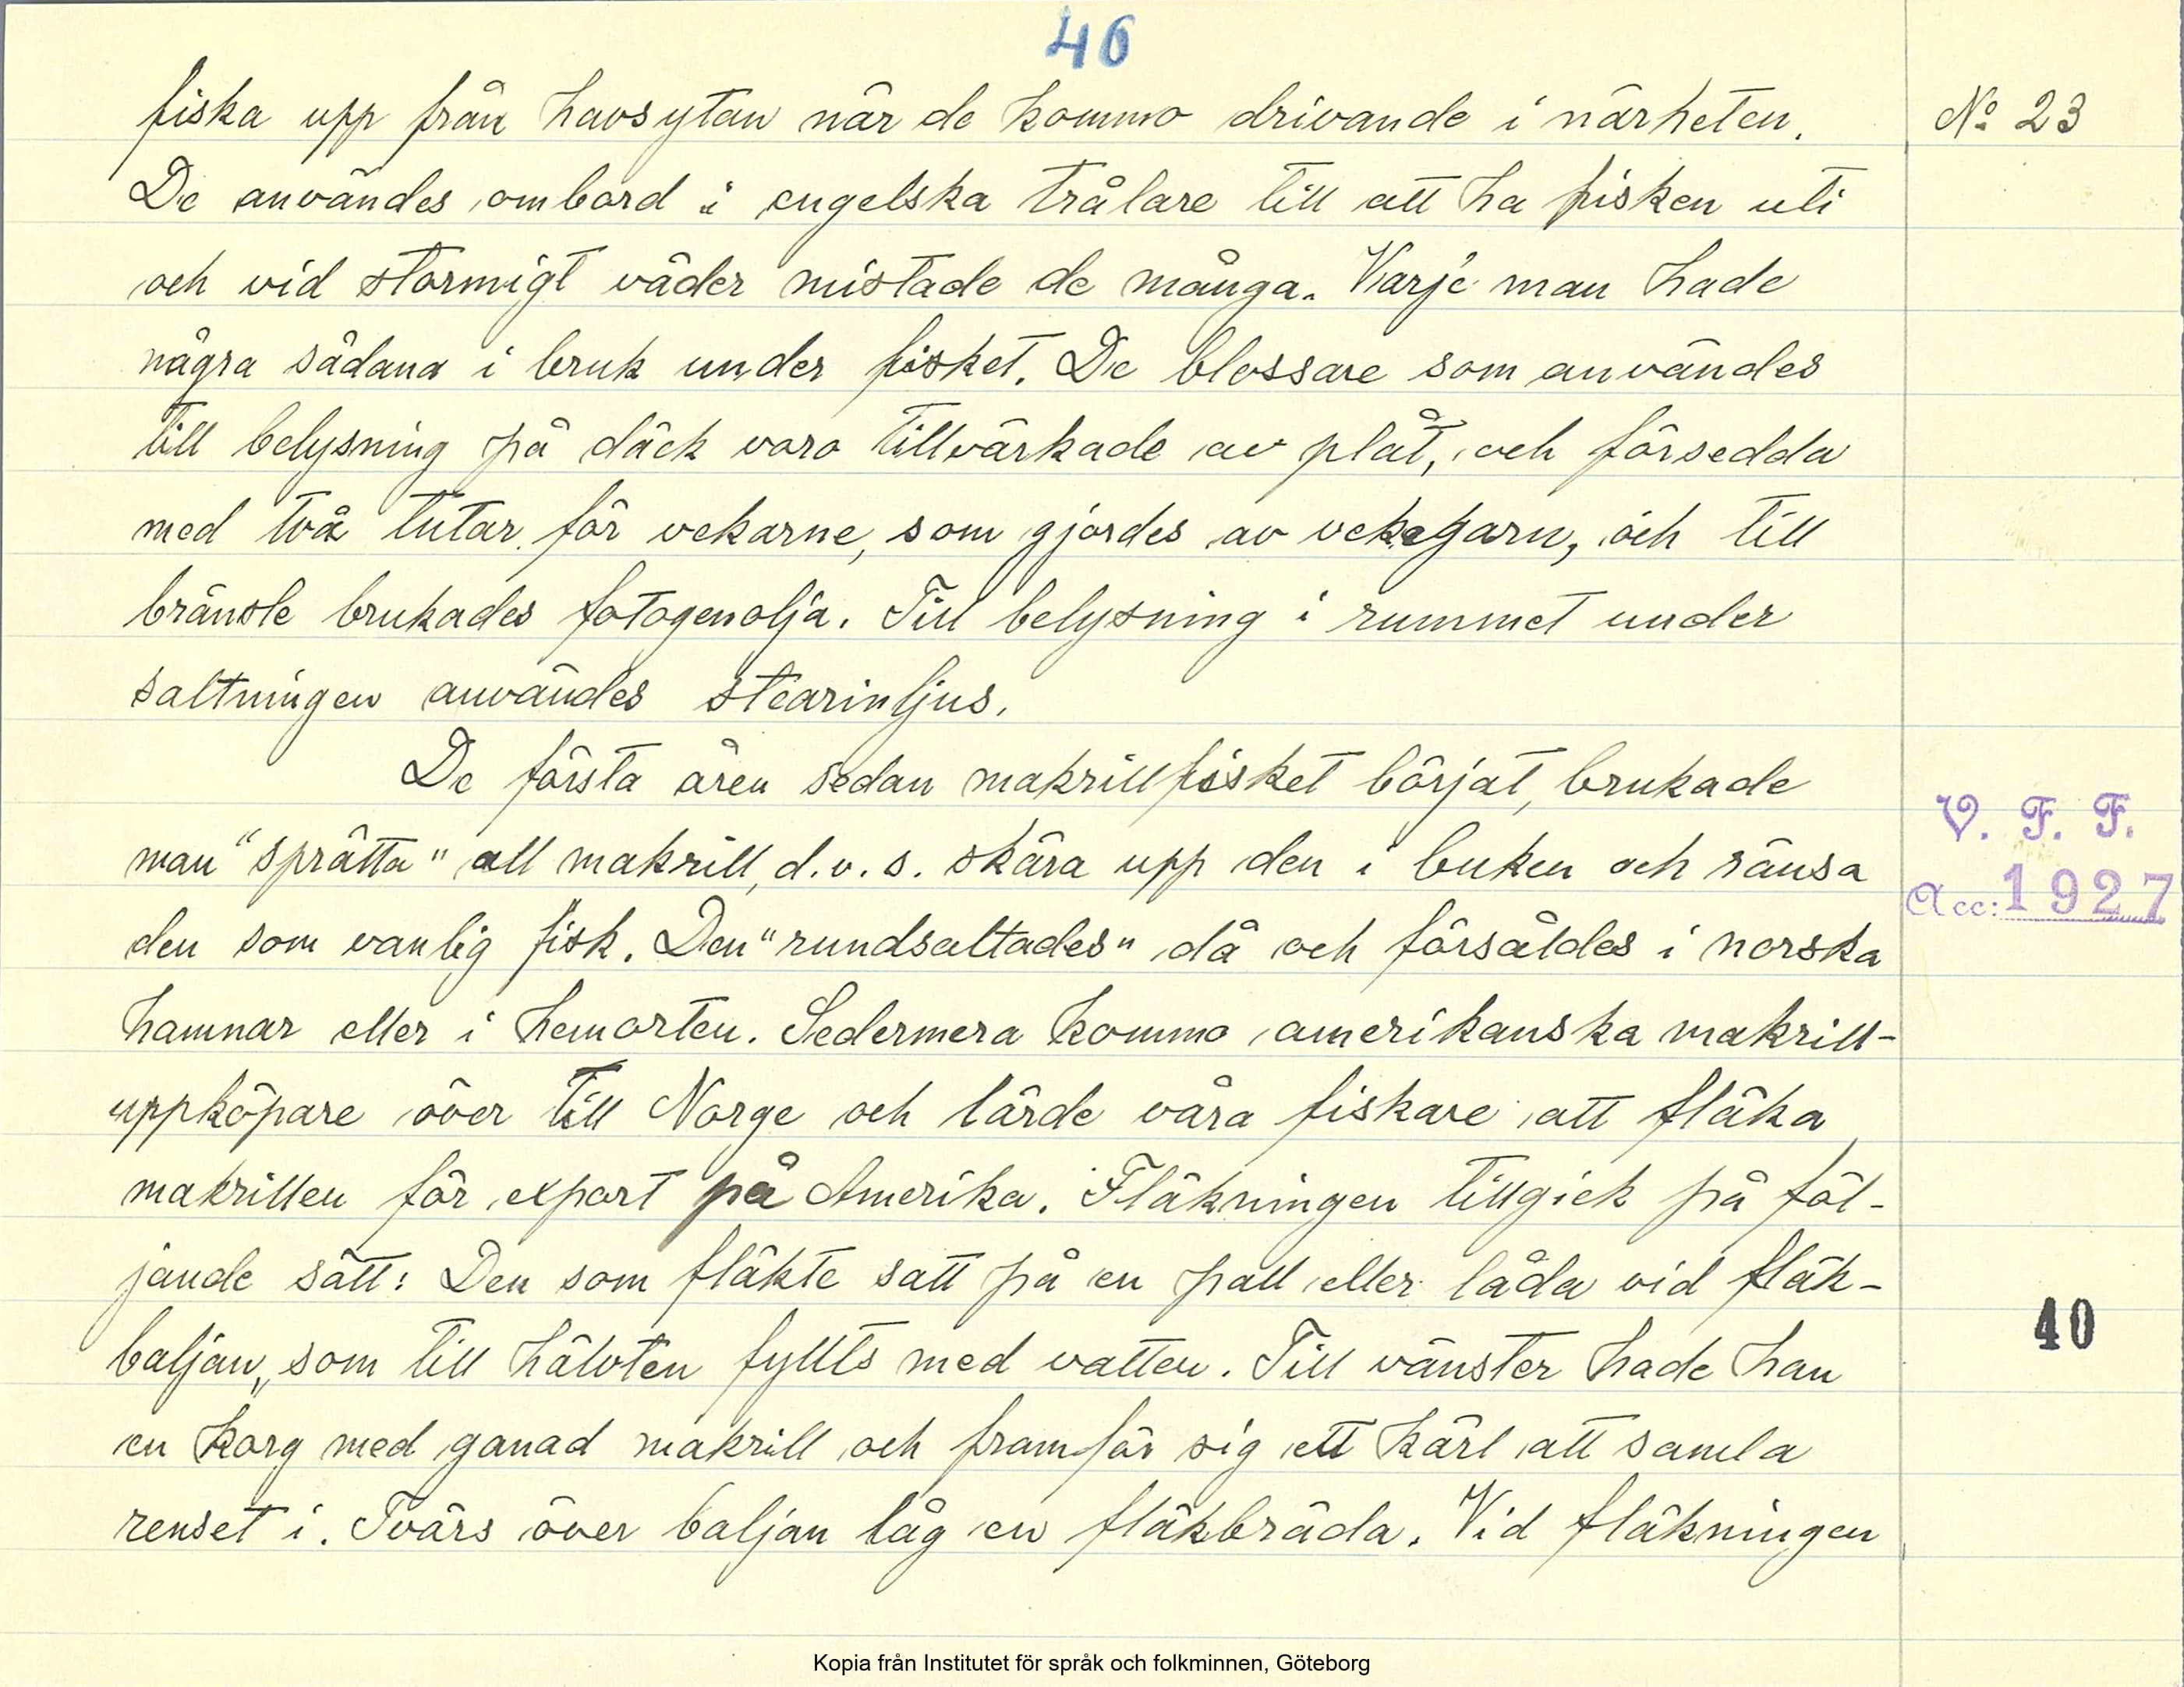 46
fiska upp från havsytan när de kommo drivande i närheten.
No 23
De användes ombord i engelska trålare till att ha fisken uti
och vid stormigt väder mistade de många. Varje man hade
några sådana i bruk under fisket. De blossare som användes
till belysning på däck voro tillvärkade av plåt, och försedda
med två tutar för vekarne, som gjordes av vekegarn, och till
bränsle brukades fotogenolja. Till belysning i rummet under
saltningen användes stearinljus.
De första åren sedan makrillfisket börjat, brukade
man "sprätta" all makrill, d.v.s. skära upp den i buken och ränsa
den som vanlig fisk. Den "rundsaltades" då och försåldes i norska
hamnar eller i hemorten. Sedermera kommo amerikanska makrill-
uppköpare över till Norge och lärde våra fiskare att fläka
makrillen för export på Amerika. Fläkningen tillgick på föl-
jande sätt: Den som fläkte satt på en pall eller låda vid fläk-
baljan, som till hälvten fyllts med vatten. Till vänster hade han
en korg med ganad makrill och framför sig ett kärl att samla
renset i. Tvärs över baljan låg en fläkbräda. Vid fläkningen
V. F. F.
Acc: 1927
40
Kopia från Institutet för språk och folkminnen, Göteborg